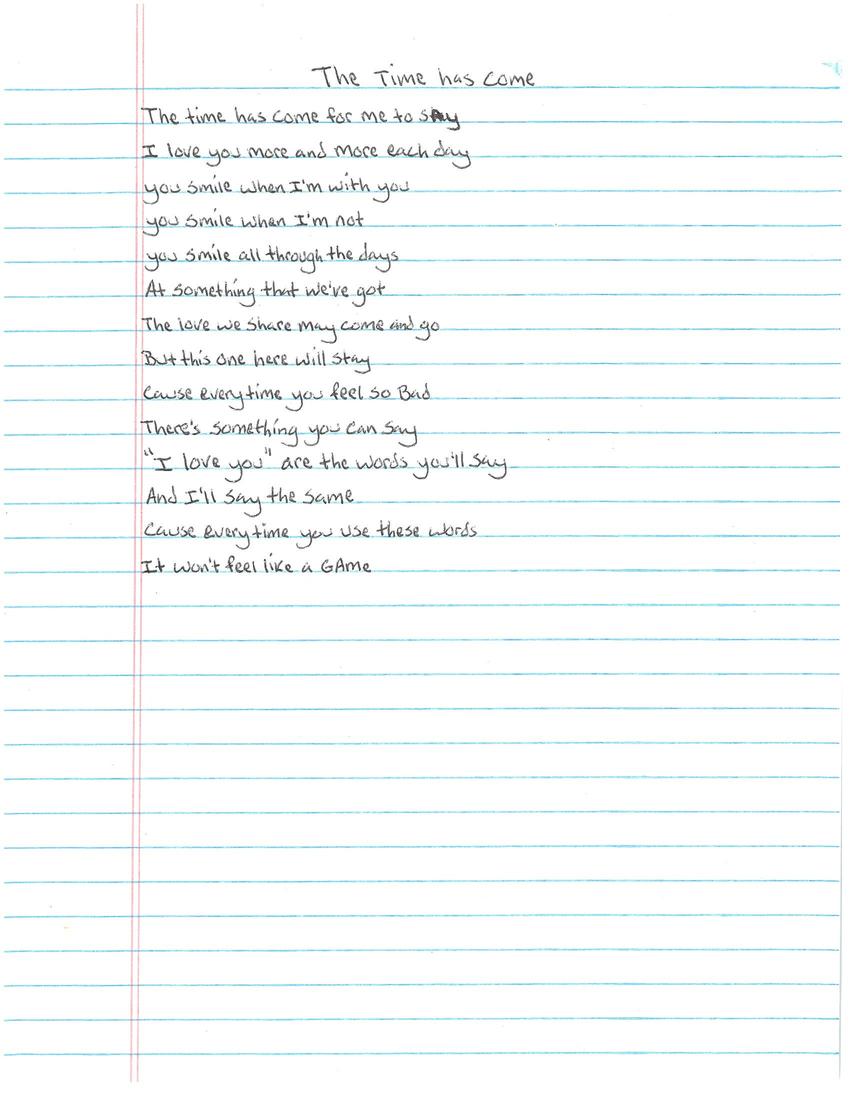 The Time has Come
The time has come for me to sAy
I love you more and more each day
you smile when I'm with you
you smile when I'm not
you smile all through the days
At something that we've got
The love we share may come and go
But this one here will stay
Cause everytime you feel so Bad
There's something you can say
"I love you" are the words you'll say
And I'll say the same
Cause everytime you use these words
It won't feel like a GAme